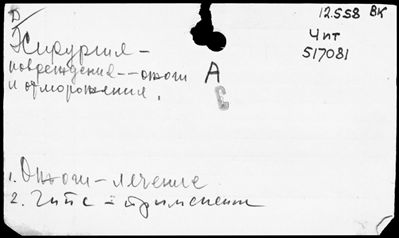 D
12.558 ВК
Хирургия –
Чит
517081
повреждения -- ожоги
А
и отморожения.
С
1. Ожоги – лечение
2. Гипс – применение